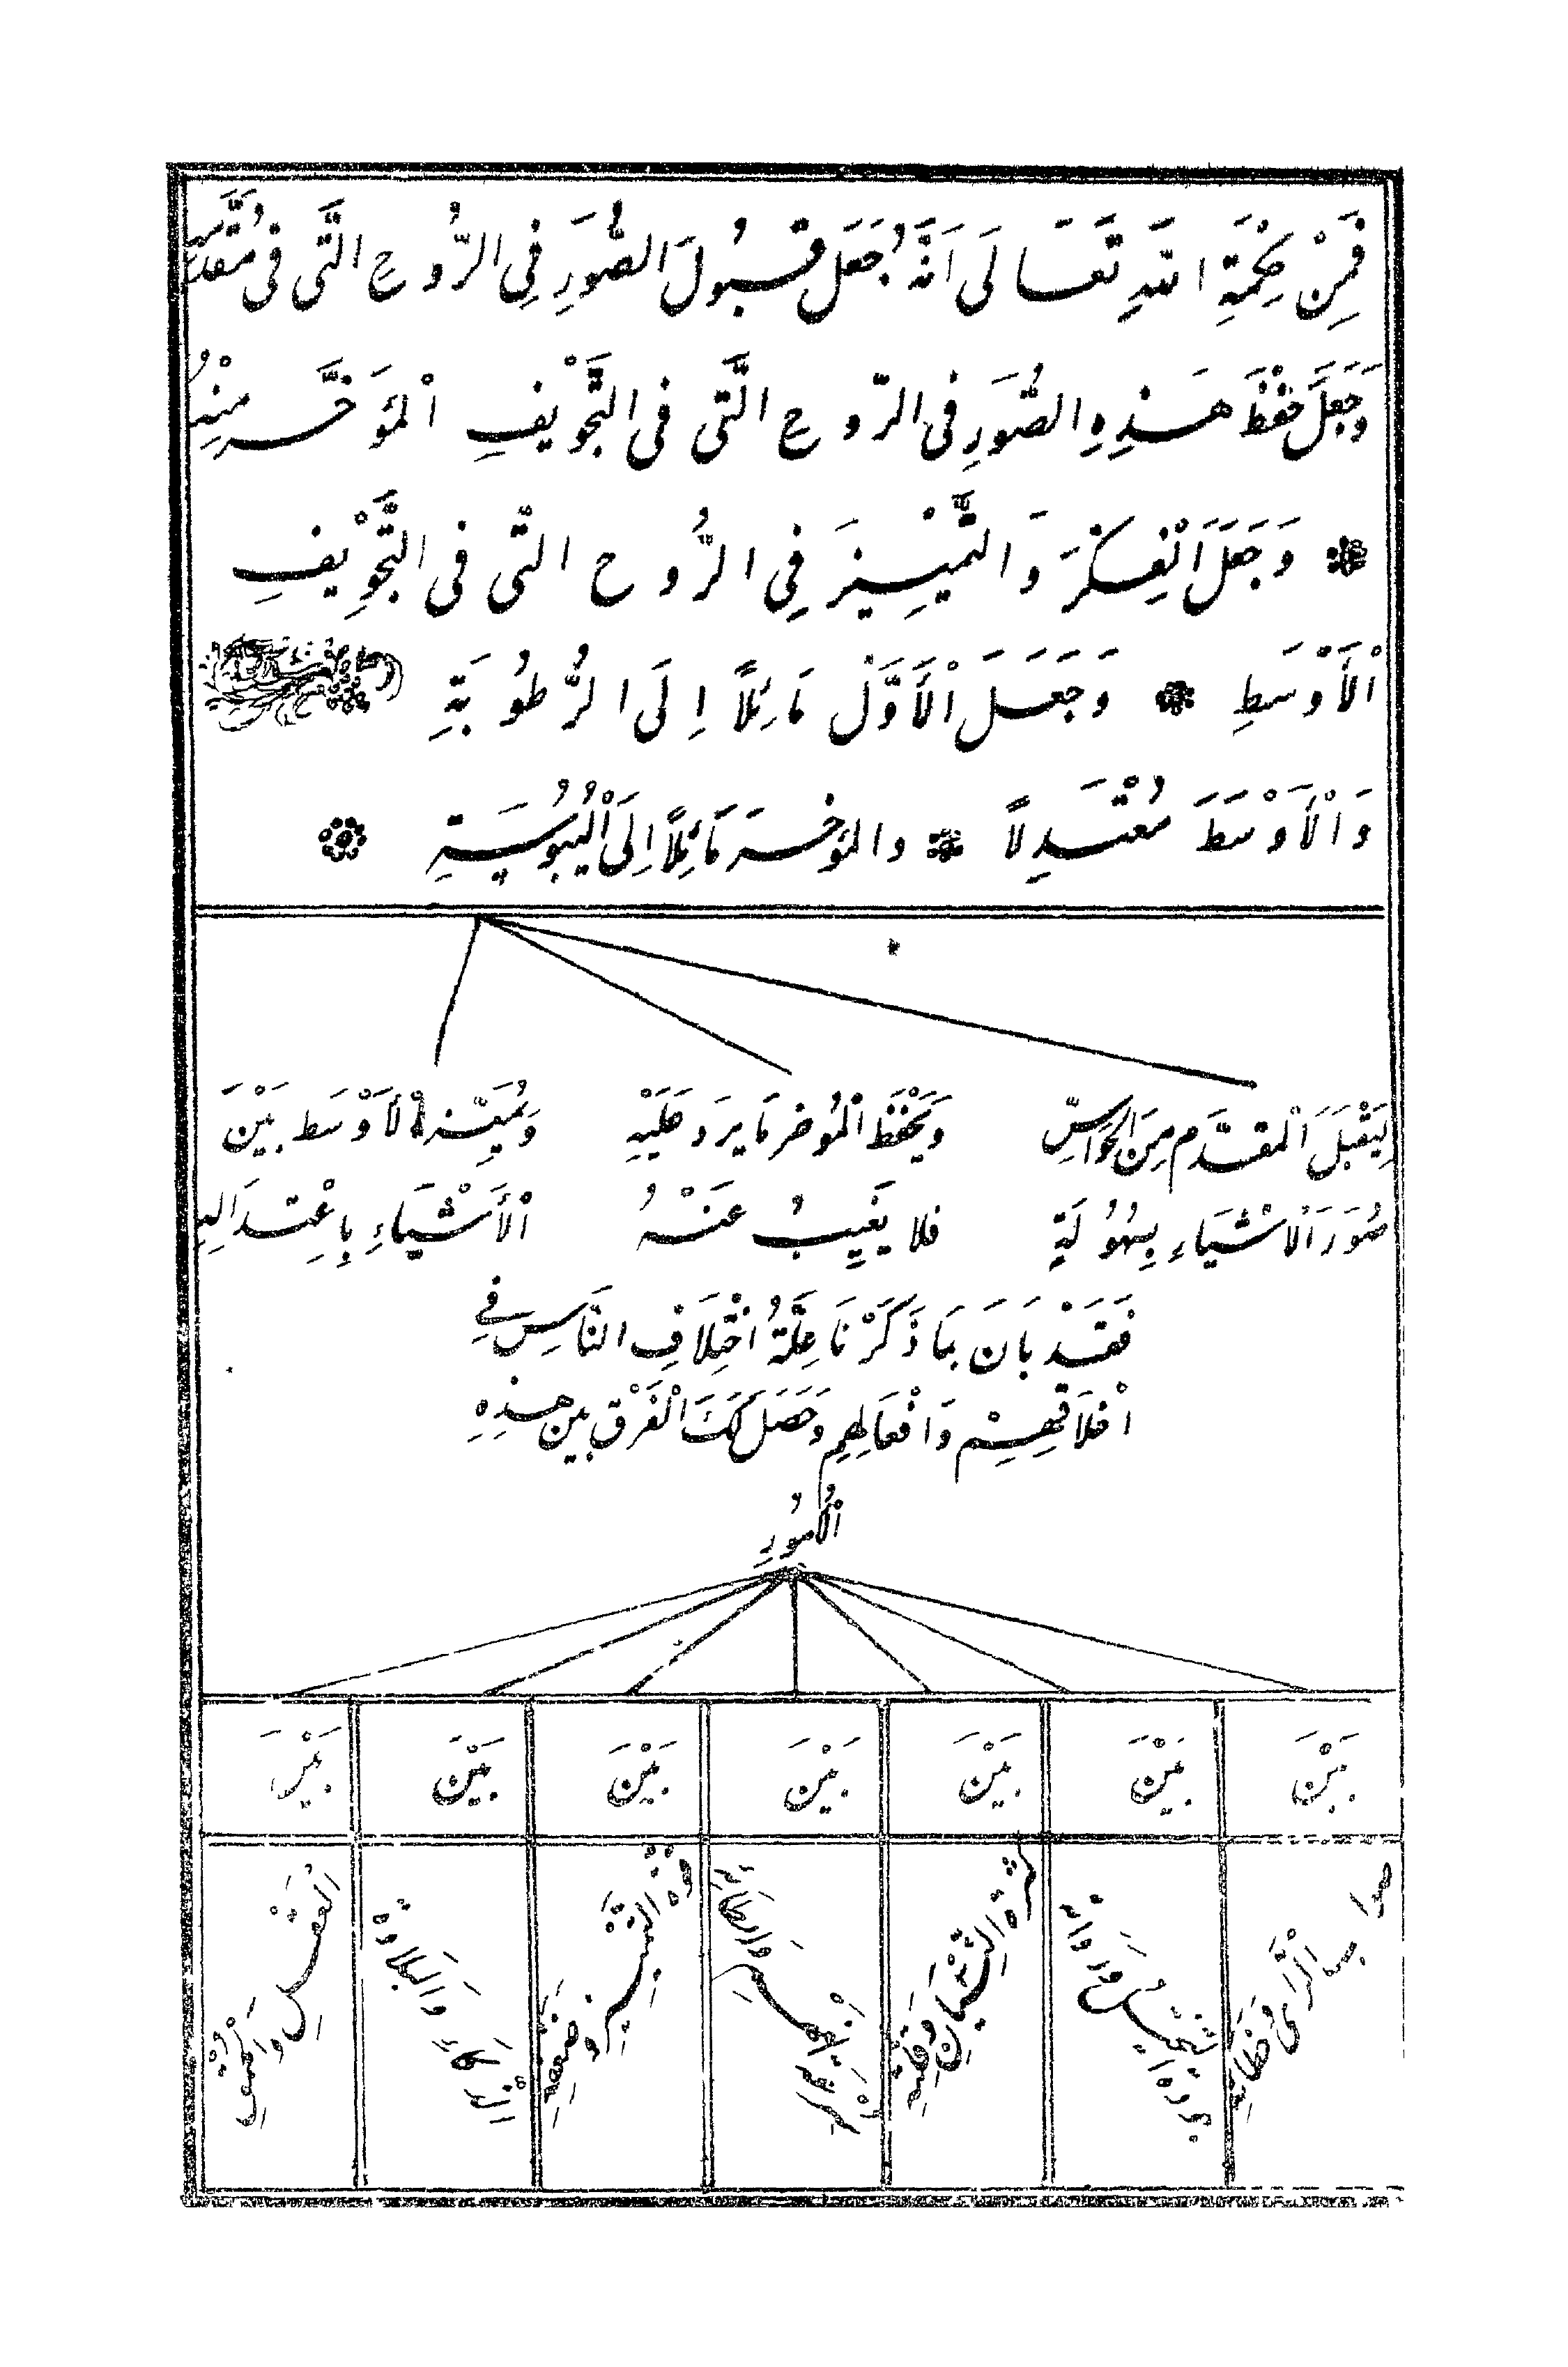 فَمِنْ حِكْمَةِ اللّٰهِ تَعَالَى اَنَّهُ جَعَلَ قَبُولَ الصُّوَرِ فِى الرُّوحِ الَّتِى فِى مُقَدَّمِهِ
وَجَعَلَ حِفْظَ هَذِهِ الصُّوَرِ فِى الرّوحِ الَّتِى فِى التَّجْوِيفِ الْمُؤَخَّرِ مِنْهُ
وَجَعَلَ الْفِكْرَ وَالتَّمْيِيزَ فِى الرُّوحِ الَّتِى فِى التَّجْوِيفِ
الْأَوْسَطِ وَجَعَلَ الْأَوَّلَ مَائِلًا اِلَى الرُّطُوبَةِ
وَالْأَوْسَطَ مُعْتَدِلًا والمؤخر مَائِلًا اِلَى الْيُبُوسَةِ
لِيَقْبَلَ الْمُقَدَّم مِنَ الْحَوَاسِّ
صُوَرَ الْاشْيَاءِ بِسُهُولَةٍ
وَيَحْفَظَ الْمُؤخر مَا يرد عَلَيْهِ
فلا يَغِيبُ عَنْهُ
وَيُمَيِّز الْأَوْسَط بَيْنَ
الْأَشْيَاءِ بِاعْتِدَالِهِ
فَقَدْ بَانَ بِمَا ذَكَرْنَا عِلَّةُ اخْتِلَافِ النَّاسِ فِى
اخْلَاقِهِمْ وَافْعَالِهِمْ وَحَصَلَ لَكَ الْفَرْق بين هذِهِ
الْأُمُورِ
بَيْنَ
بَيْنَ
بَيْنَ
بَيْنَ
بَيْنَ
بَيْنَ
بَيْنَ
الرَّأْىِ وَخَطَائِهِ
كَثْرَةِ النِّسْيَانِ وَقِلَّتِهِ
قُوَّةِ التَّمْيِيزِ وَضَعْفِهِ
الذَّكَاءِ وَالْبَلَادَةِ
الْعَقْلِ وَالْحُمْقِ